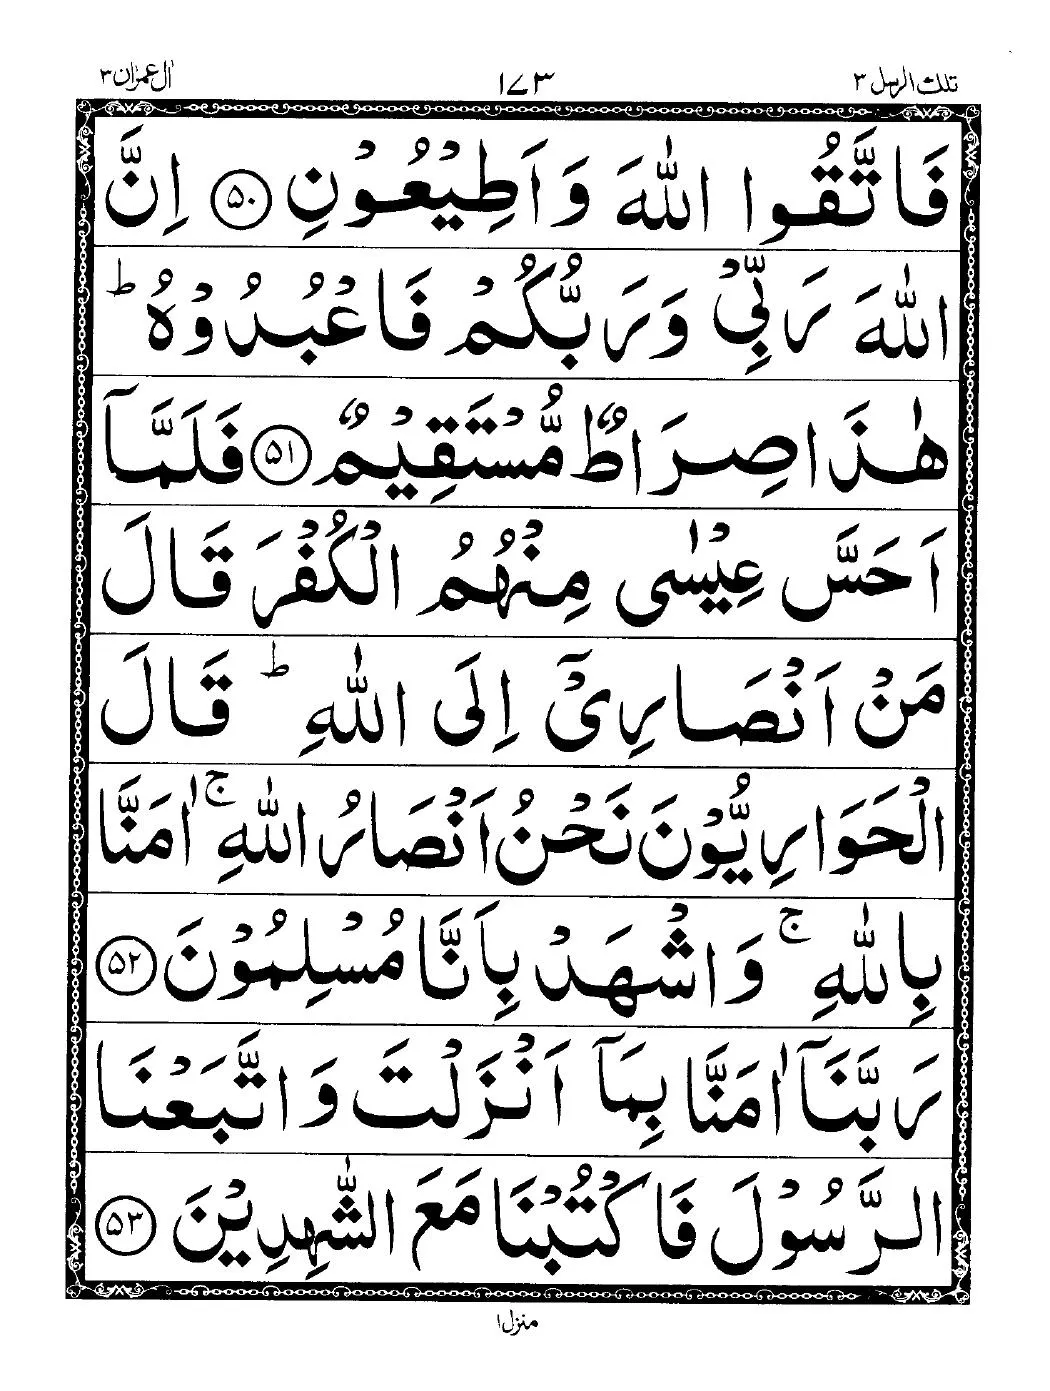 تلك الرسل ٣
١٧٣
اٰل عمرٰن ٣
فَاتَّقُوا اللّٰهَ وَاَطِيْعُوْنِ ۝٥٠ اِنَّ
اللّٰهَ رَبِّيْ وَرَبُّكُمْ فَاعْبُدُوْهُ ؕ
هٰذَا صِرَاطٌ مُّسْتَقِيْمٌ ۝٥١ فَلَمَّاۤ
اَحَسَّ عِيْسٰى مِنْهُمُ الْكُفْرَ قَالَ
مَنْ اَنْصَارِيْۤ اِلَى اللّٰهِ ؕ قَالَ
الْحَوَارِيُّوْنَ نَحْنُ اَنْصَارُ اللّٰهِ ۚ اٰمَنَّا
بِاللّٰهِ ۚ وَاشْهَدْ بِاَنَّا مُسْلِمُوْنَ ۝٥٢
رَبَّنَاۤ اٰمَنَّا بِمَاۤ اَنْزَلْتَ وَاتَّبَعْنَا
الرَّسُوْلَ فَاكْتُبْنَا مَعَ الشّٰهِدِيْنَ ۝٥٣
منزل ١